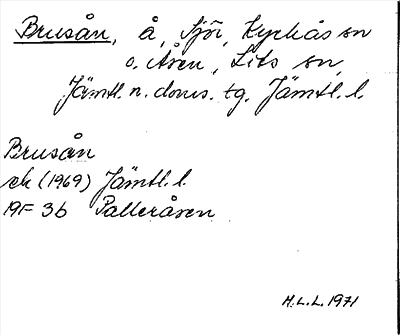 Brusån, å, Sjöi, Kyrkås sn
o. Åsen, Lits sn,
Jämtl. n. doms. tg. Jämtl. l.
Brusån
ek (1969) Jämtl. l.
19F 3b Palleråsen
H.L.L. 1971